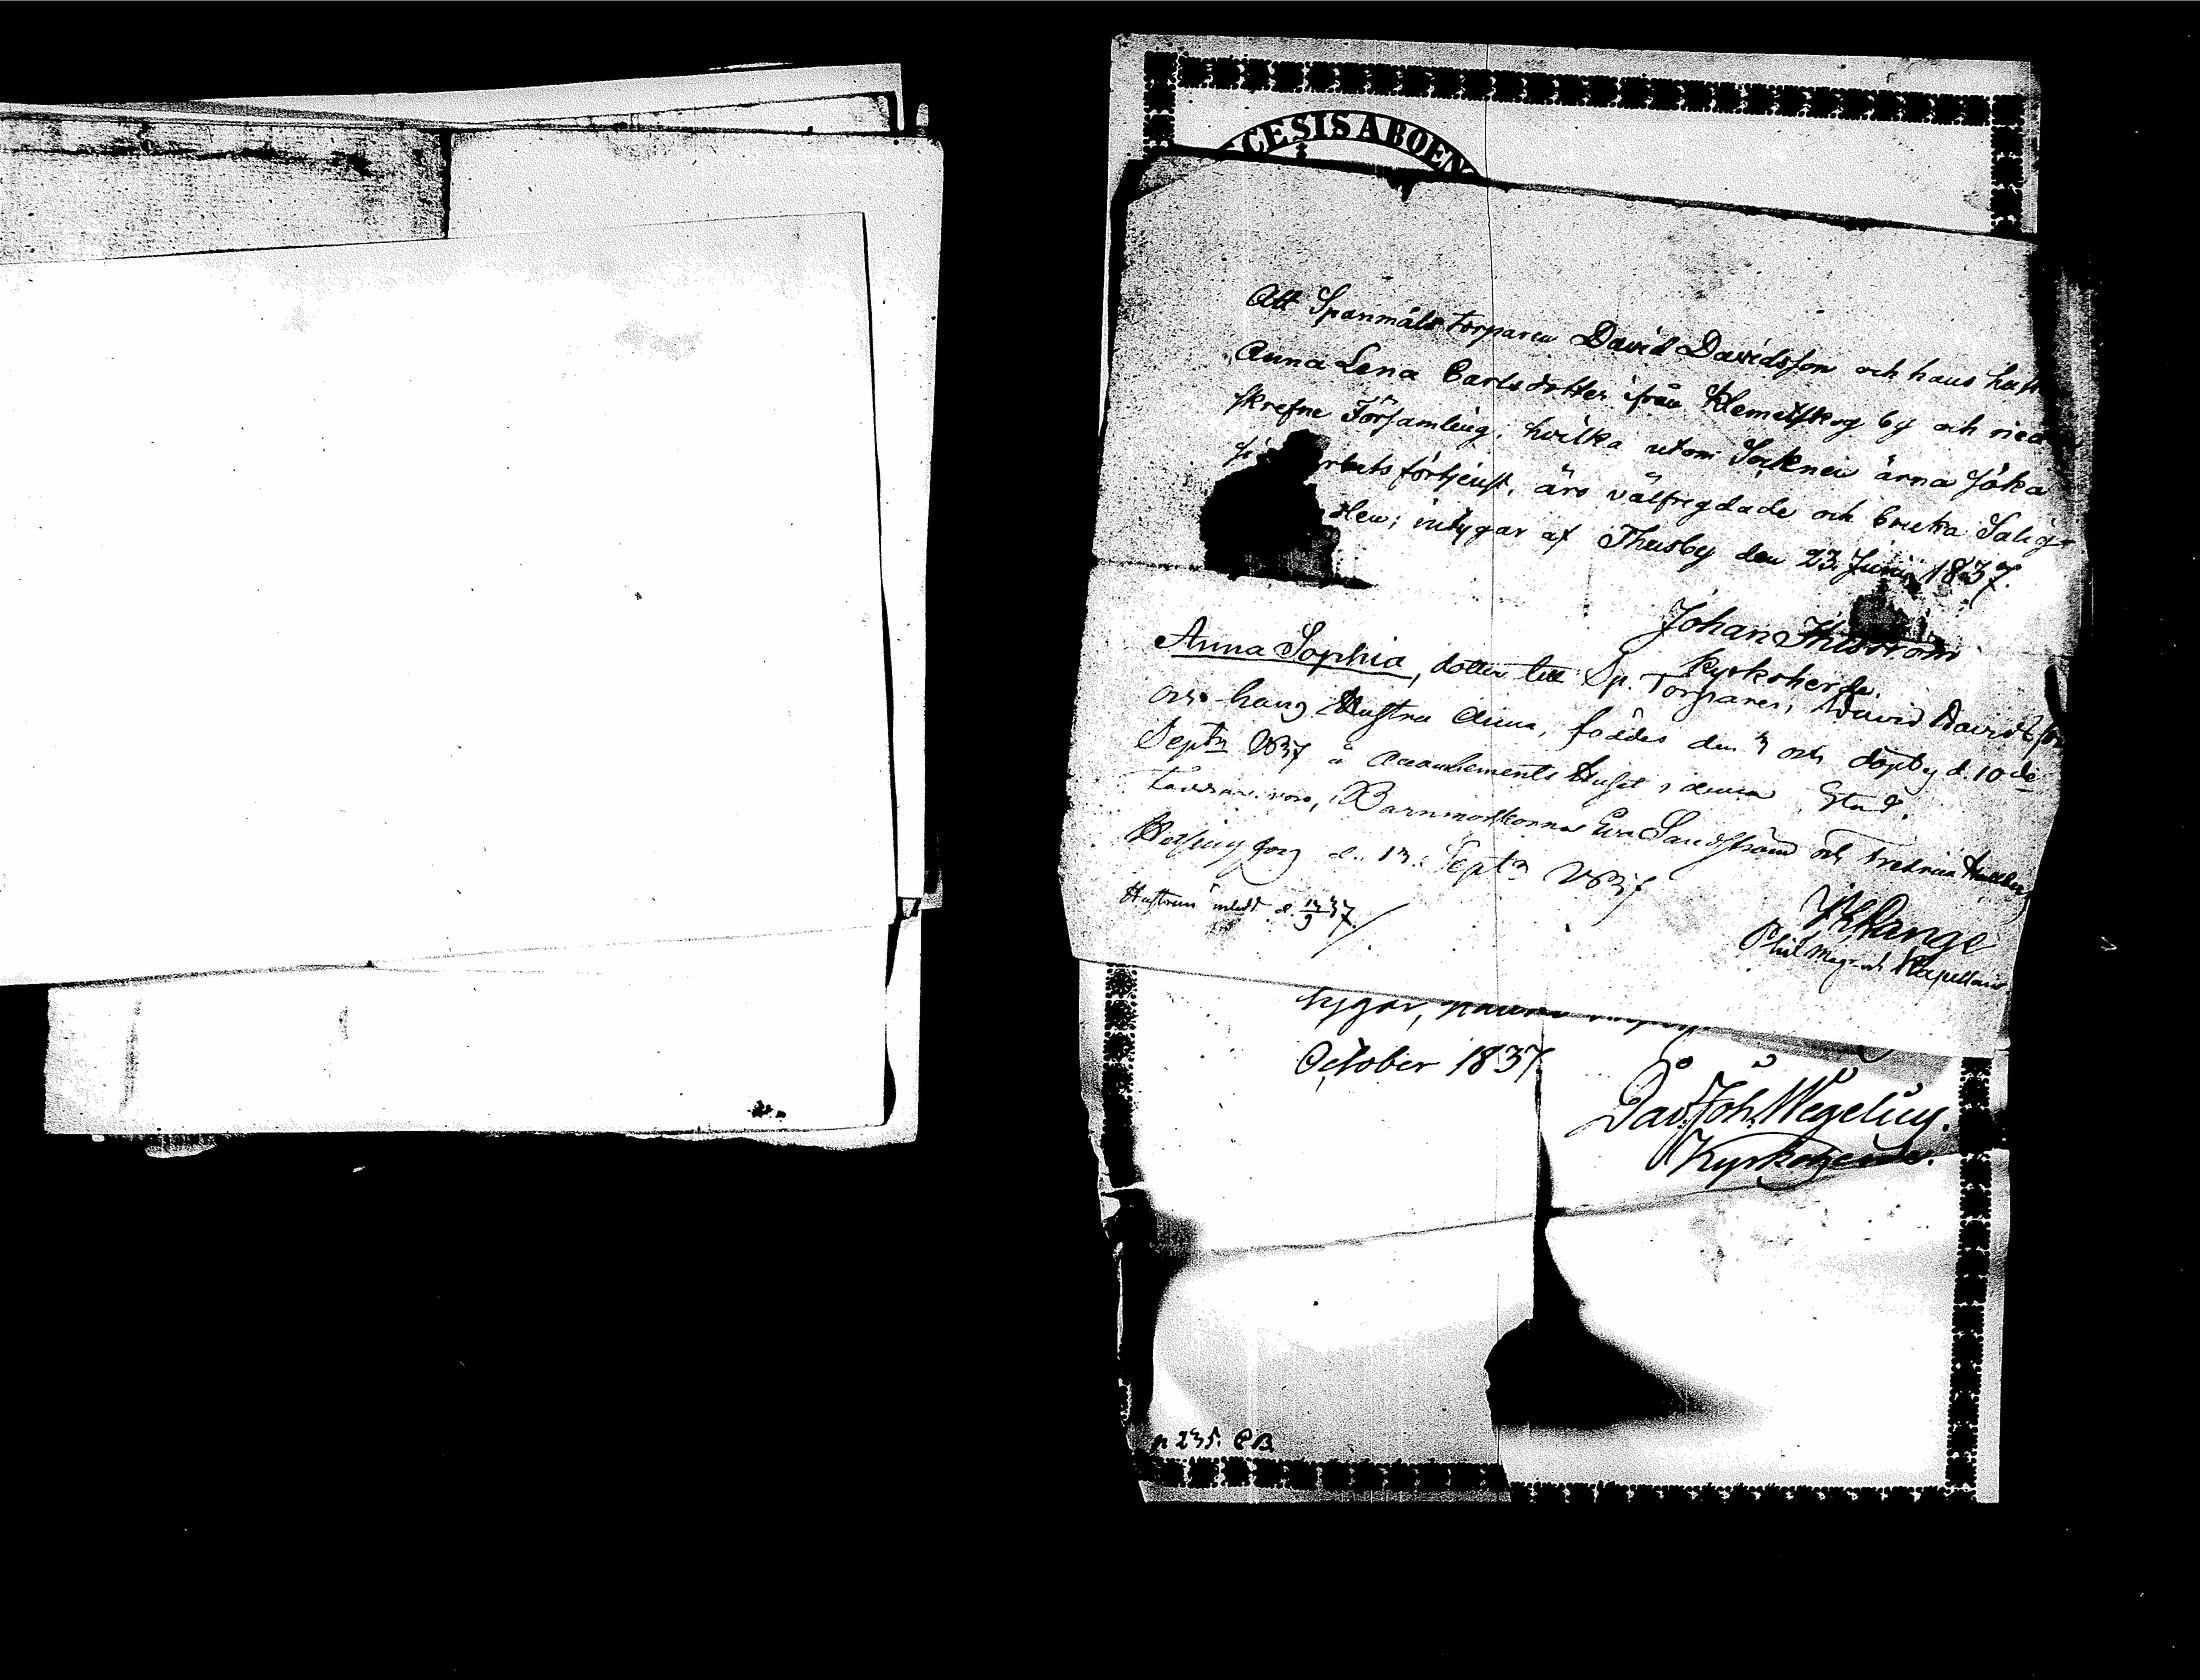 CESIS ABOEN
Att Spanmåls torparen David Davidsson och hans hust
Anna Lena Carlsdotter ifrån Klemetskog by och ned
skrefne Församling, hvilka utom Socknen ärna söka
förtjenst, äro välfregdade och bruka Salig
intygar af Thusby den 23 Junii 1837.
Johan
Kyrkoherde.
Anna Sophia, dotter till Sp. Torparen, David Davidsson
och hans Hustru Anna, föddes den 3 och döptes d. 10de
Septr 1837 å Accouchements Huset i denna Stad.
Barnmorskorna Eva Sandström och Fredrica
Helsingfors d. 13 Septr 1837
Hustrun
Lange
Phil. Magr och Kapellan.
tygar,
October 1837
Dav. Joh. Wegelius.
Kyrkoherde.
p 235. CB